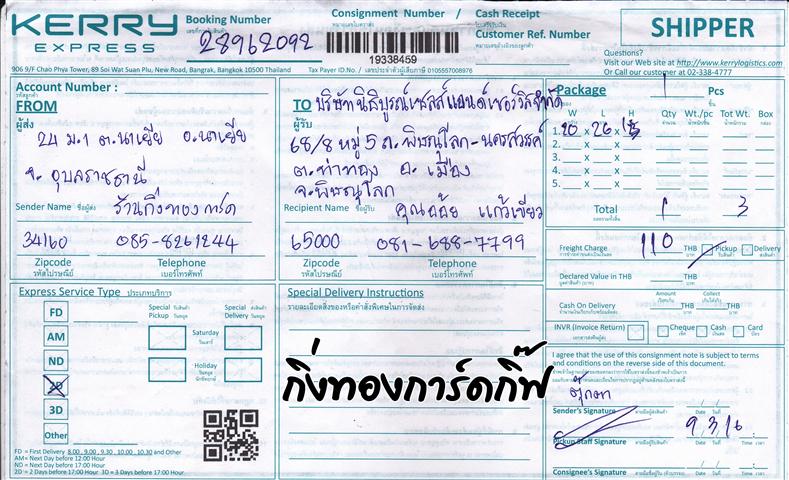 KERRY
EXPRESS
Booking Number
28962092
Consignment Number /
19338459
Cash Receipt
Customer Ref. Number
SHIPPER
Questions?
Visit our Web site at http://www.kerrylogistics.com
Or Call our customer at 02-338-4777
906 9/F Chao Phya Tower, 89 Soi Wat Suan Plu, New Road, Bangrak, Bangkok 10500 Thailand
Tax Payer ID.No. / เลขประจำตัวผู้เสียภาษี 0105557008976
Account Number :
FROM
ผู้ส่ง
24 ม.1 ต.นาเยีย อ.นาเยีย
จ. อุบลราชธานี
Sender Name ชื่อผู้ส่ง ร้านกิ่งทอง การ์ด
34160 085-8261244
Zipcode Telephone
รหัสไปรษณีย์ เบอร์โทรศัพท์
TO บริษัทนิธิบูรณ์เซลส์แอนด์เซอร์วิสจำกัด
ผู้รับ
68/8 หมู่ 5 ถ.พิษณุโลก-นครสวรรค์
ต.ท่าทอง อ. เมือง
จ.พิษณุโลก
Recipient Name ชื่อผู้รับ คุณอ้อย แก้วเขียว
65000 081-688-7799
Zipcode Telephone
รหัสไปรษณีย์ เบอร์โทรศัพท์
Package 1 Pcs
W L H Qty Wt./pc Tot Wt. Box
1. 20 x 26 x
2. x x
3. x x
4. x x
5. x x
Total 1 3
Freight Charge 110 THB Pickup Delivery
Declared Value in THB THB
Amount Collect
Cash On Delivery THB THB
INVR (Invoice Return) Cheque Cash Card
Express Service Type ประเภทบริการ
Special Pickup
Special Delivery
FD
AM
ND
2D
3D
Other
Saturday
วันเสาร์
Holiday
FD = First Delivery 8.00 , 9.00 , 9.30 , 10.00 , 10.30 and Other
AM= Next Day before 12:00 Hour
ND = Next Day before 17:00 Hour
2D = 2 Days before 17:00 Hour 3D = 3 Days before 17:00 Hour
Special Delivery Instructions
รายละเอียดสิ่งของหรือคำสั่งพิเศษในการจัดส่ง
กิ่งทองการ์ดกิ๊ฟ
I agree that the use of this consignment note is subject to terms
and conditions on the reverse side of this document.
Sender's Signature Date
Pickup Staff Signature Date
9 3 16
Consignee's Signature Date